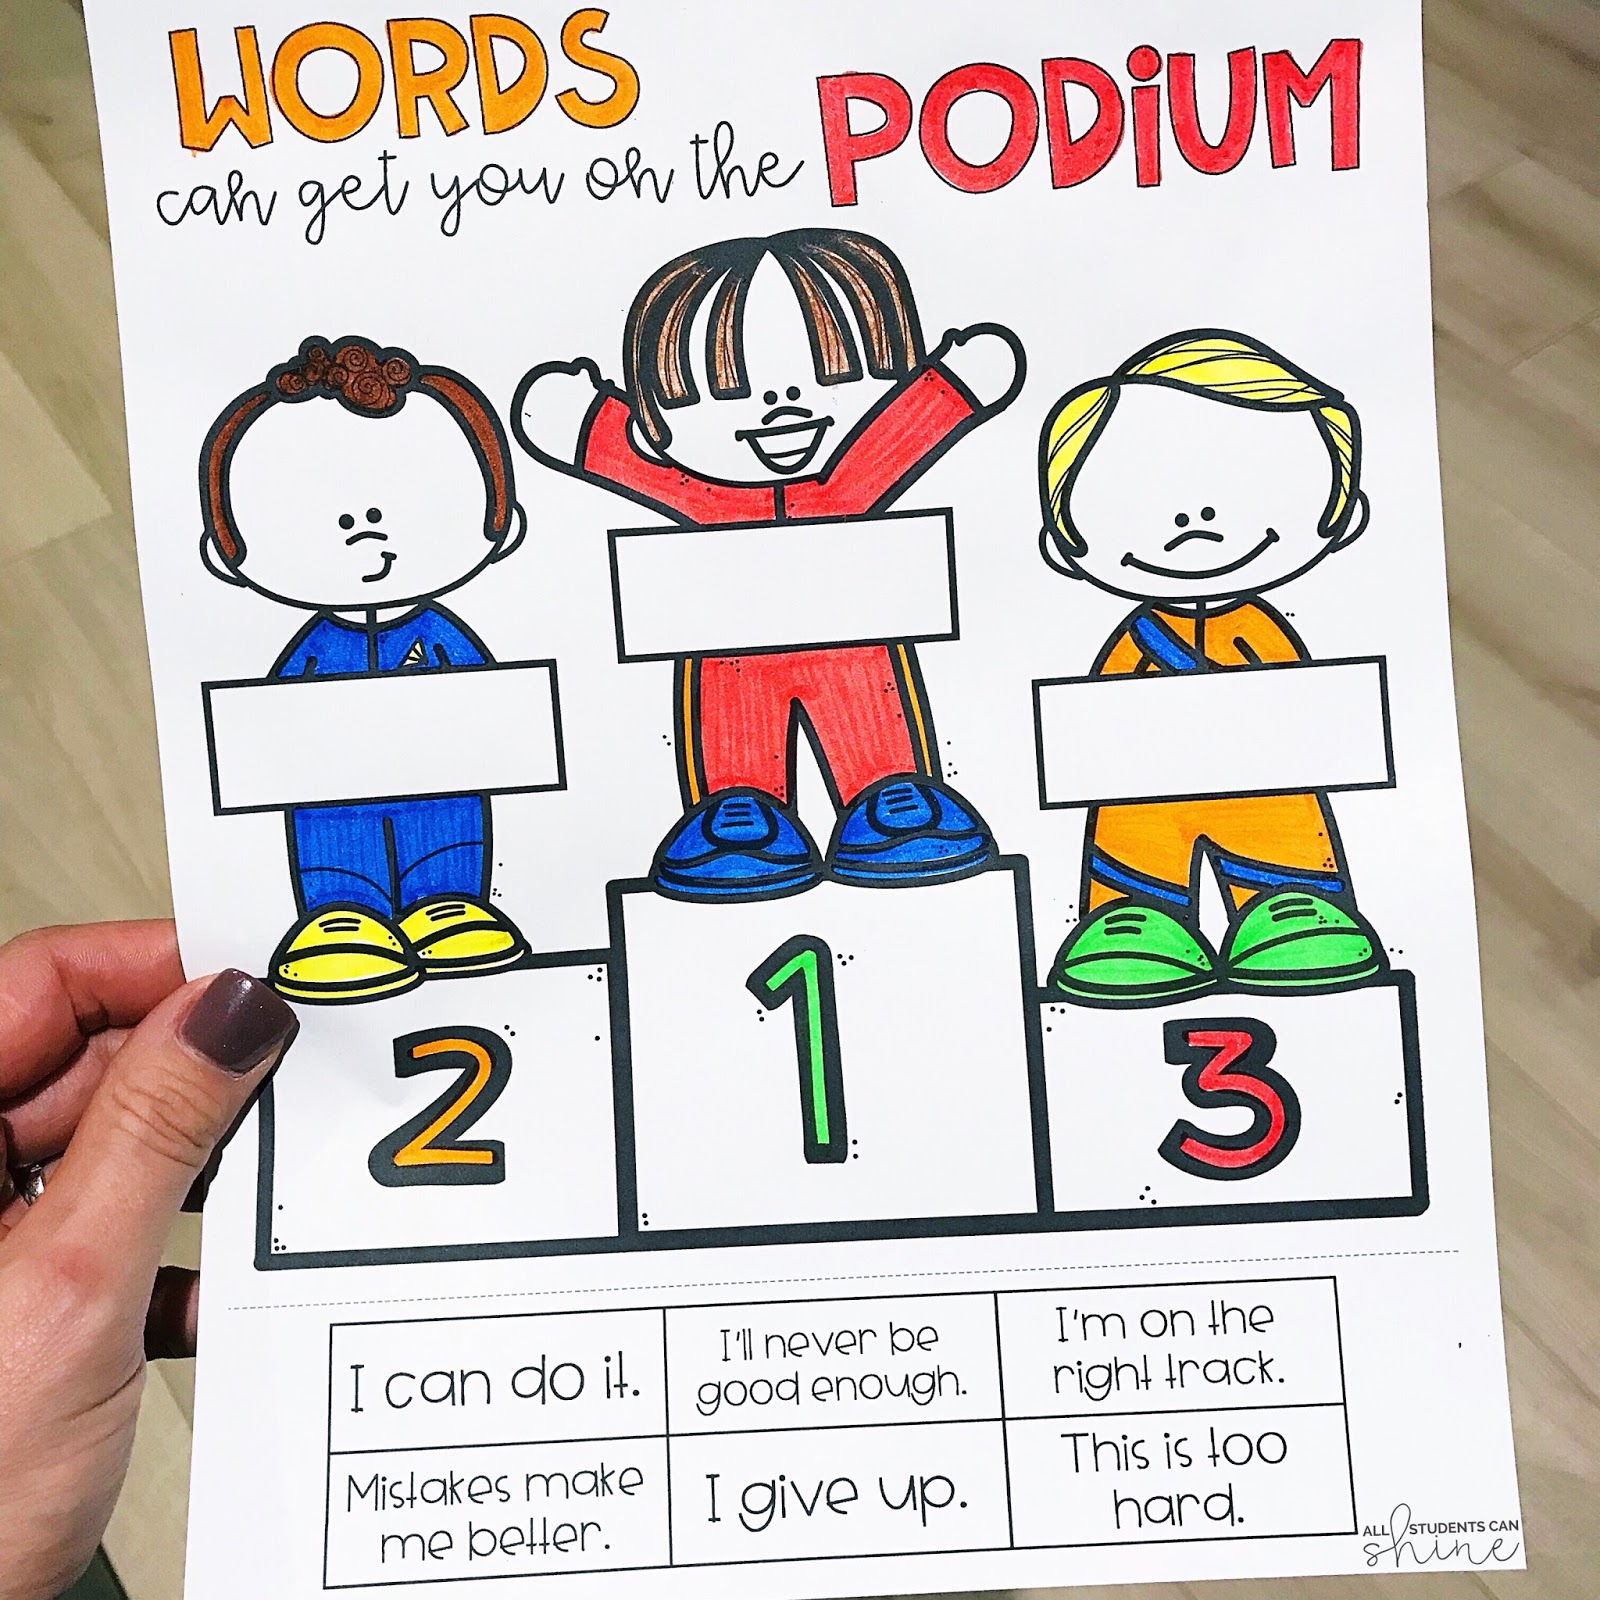 WORDS
can get you on the PODiUM
2
1
3
I can do it.
I'll never be
good enough.
I'm on the
right track.
Mistakes make
me better.
I give up.
This is too
hard.
ALL STUDENTS CAN
shine